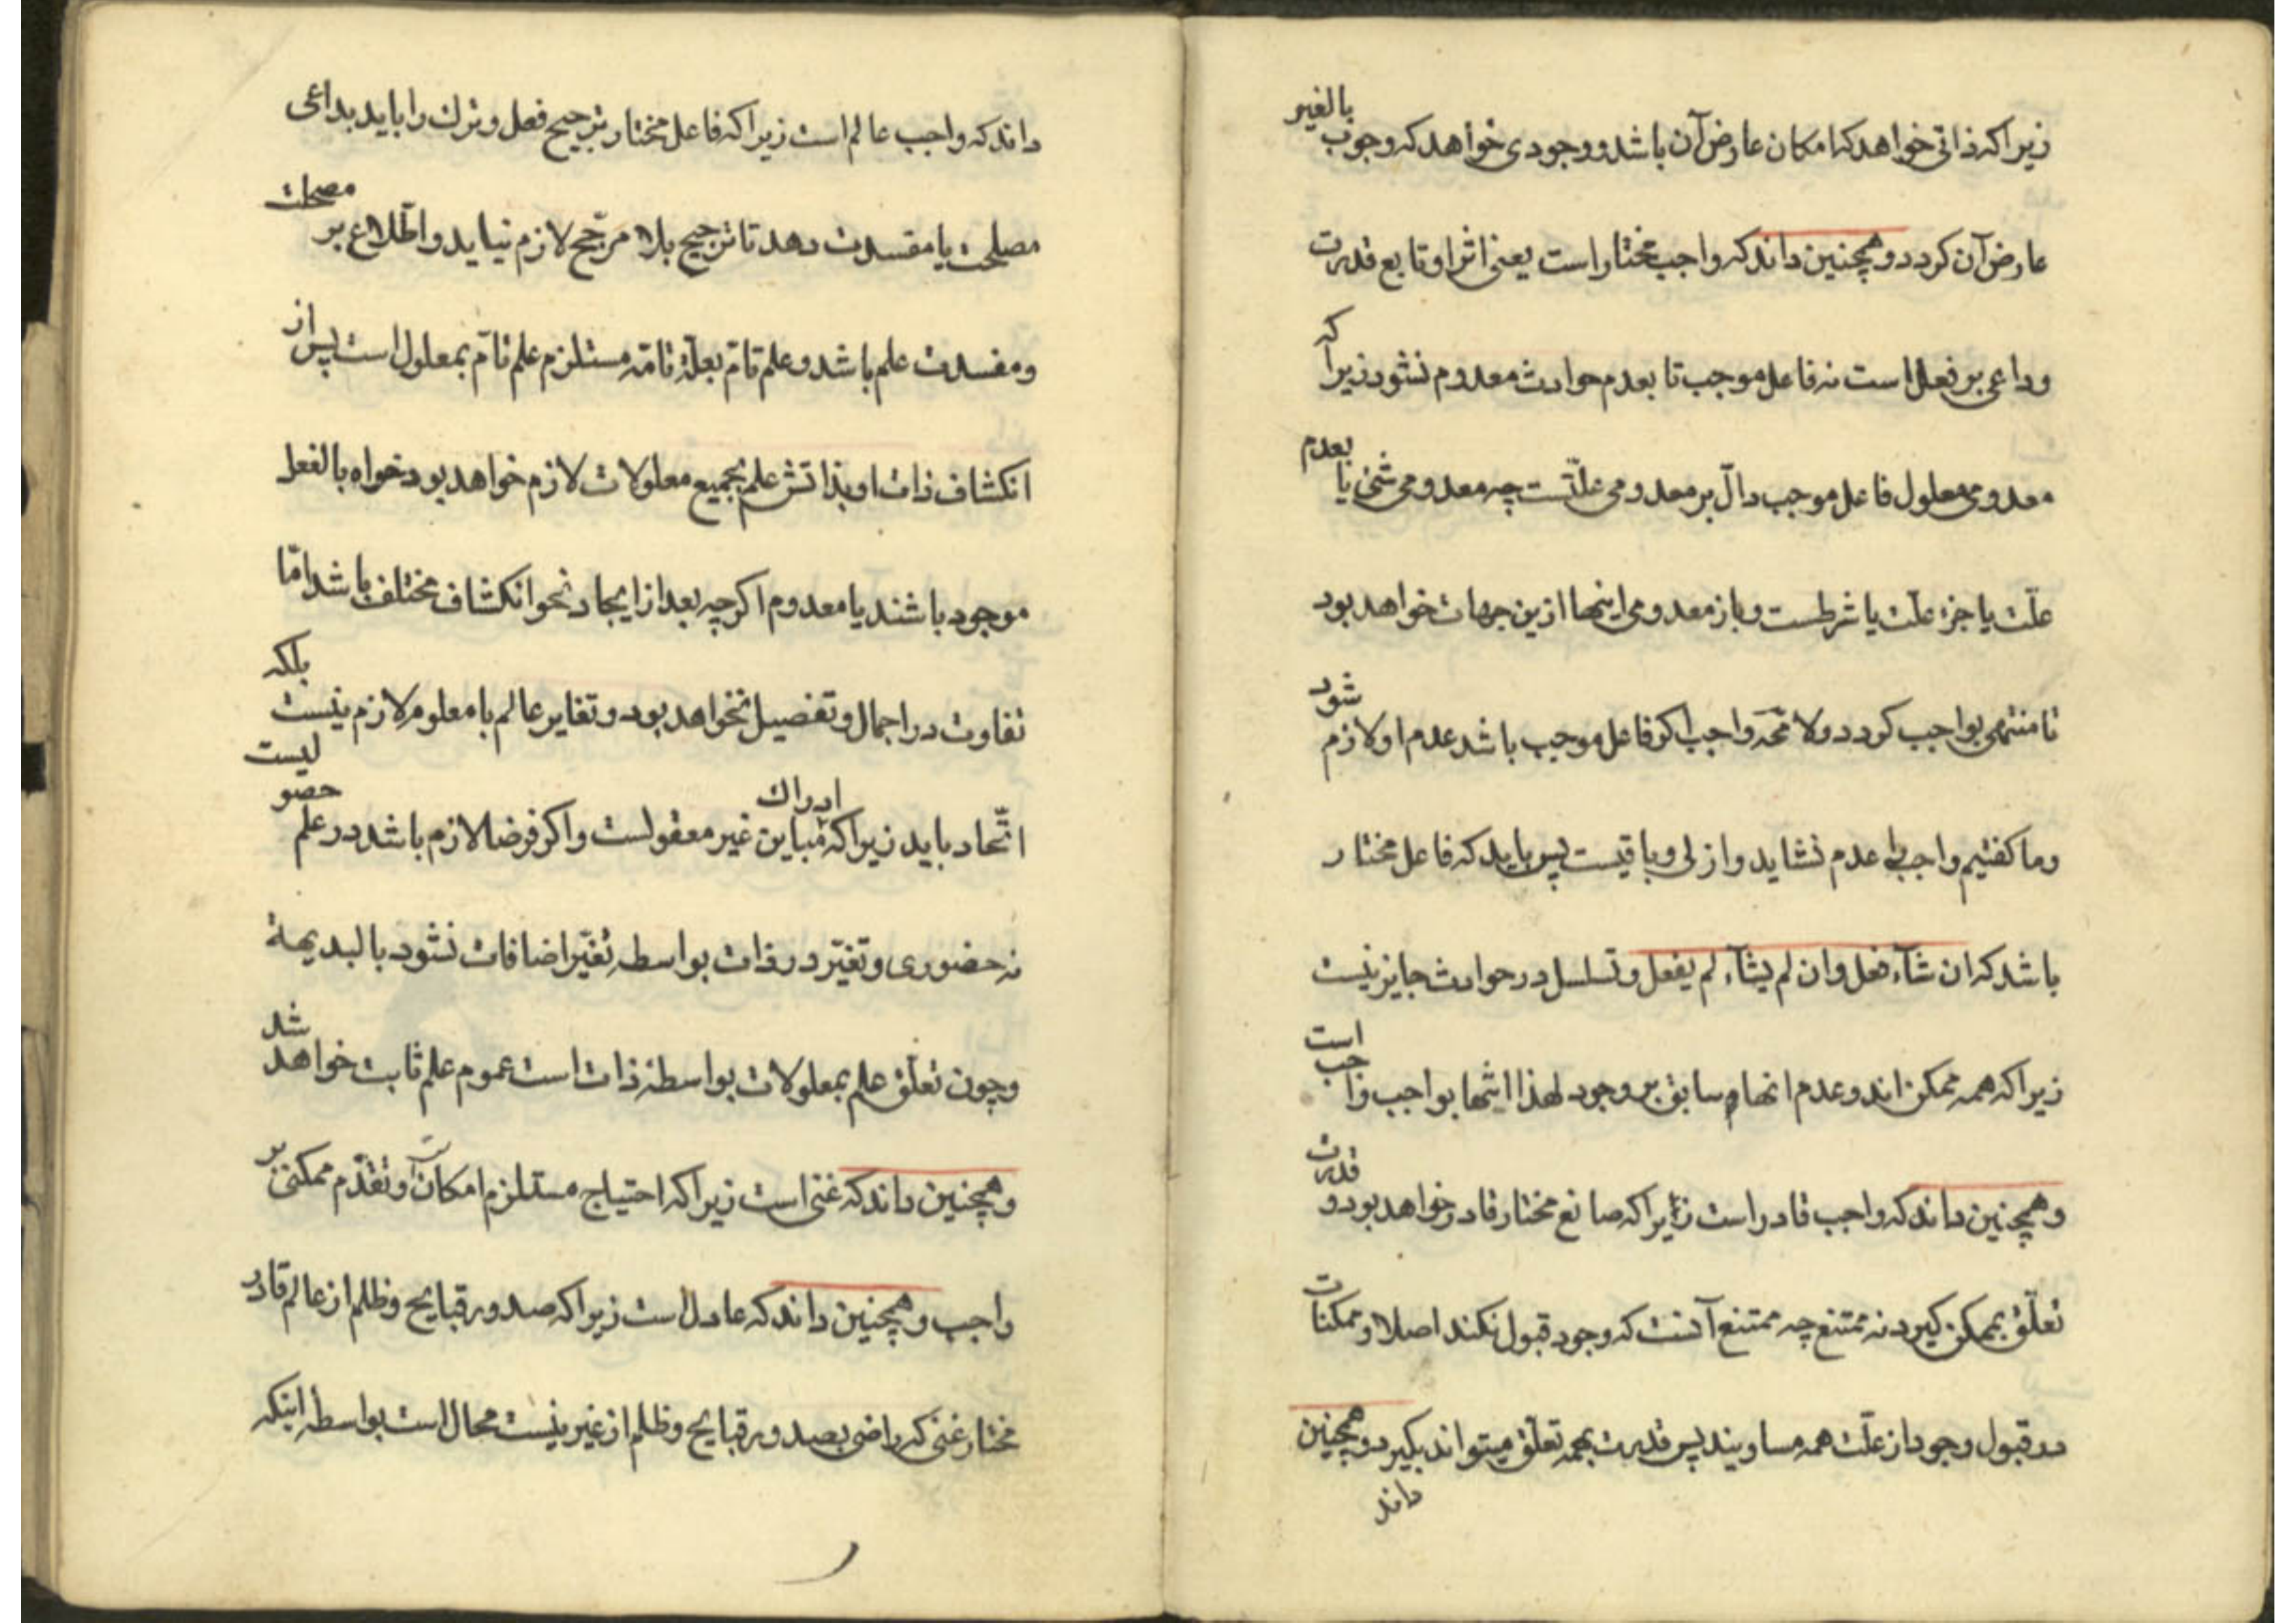 زیرا که ذاتی خواهد که امکان عارض آن باشد و وجودی خواهد که وجوب بالغیر
عارض آن کردد و همچنین داند که واجب مختار است یعنی اثر او تابع قدرت
و داعی بر فعل است نه فاعل موجب تا بعدم حوادث معدوم نشود زیرا که
معدومی معلول فاعل موجب دالّ بر معدومی علّتست چه معدومی شئی یا بعدم
علّت یا جزء علّت یا شرطست و باز معدومی اینها ازین جهات خواهد بود
تا منتهی بواجب کردد و لا محّه واجب اکر فاعل موجب باشد عدم او لازم شود
و ما کفتیم واجب را عدم نشاید و ازلی و باقیست پس باید که فاعل مختار
باشد که ان شآء فعل و ان لم یشآء لم یفعل و تسلسل در حوادث جایز نیست
زیرا که همه ممکن اند و عدم انها سابق بر وجود لهذا انتها بواجب واجب است
و همچنین داند که واجب قادر است زیرا که صانع مختار قادر خواهد بود و قدرت
تعلّق بممکن کیرد نه ممتنع چه ممتنع آنست که وجود قبول نکند اصلا و ممکنات
در قبول وجود از علّت همه مساویند پس قدرت بهمه تعلّق میتواند بکیرد و همچنین
داند
داند که واجب عالم است زیرا که فاعل مختار ترجیح فعل و ترک را باید بداعی
مصلحت یا مفسدت دهد تا ترجیح بلا مرجّح لازم نیاید و اطّلاع بر مصلحت
و مفسدت علم باشد و علم تامّ بعلّة تامّه مستلزم علم تامّ بمعلول است پس از
انکشاف ذات او بذاتش علم بجمیع معلولات لازم خواهد بود خواه بالفعل
موجود باشند یا معدوم اکرچه بعد از ایجاد نحو انکشاف مختلف باشد امّا
تفاوت در اجمال و تفصیل نخواهد بود و تغایر عالم با معلوم لازم نیست بلکه
اتّحاد باید زیرا که ادراک مباین غیر معقولست و اکر فرضا لازم باشد در علم حصو لیست
نه حضوری و تغیّر در ذات بواسطه تغیّر اضافات نشود بالبدیهة
و چون تعلّق علم بمعلولات بواسطه ذات است عموم علم ثابت خواهد شد
و همچنین داند که غنی است زیرا که احتیاج مستلزم امکان است و تقدّم ممکنی بر
واجب و همچنین داند که عادل است زیرا که صدور قبایح و ظلم از عالم قادر
مختار غنی که راضی بصدور قبایح و ظلم از غیر نیست محال است بواسطه اینکه